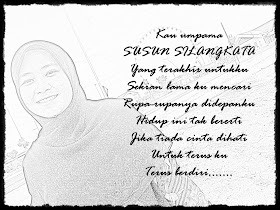 Kau umpama
SUSUN SILANGKATA
Yang terakhir untukku
Sekian lama ku mencari
Rupa-rupanya didepanku
Hidup ini tak bererti
Jika tiada cinta dihati
Untuk terus ku
Terus berdiri.......